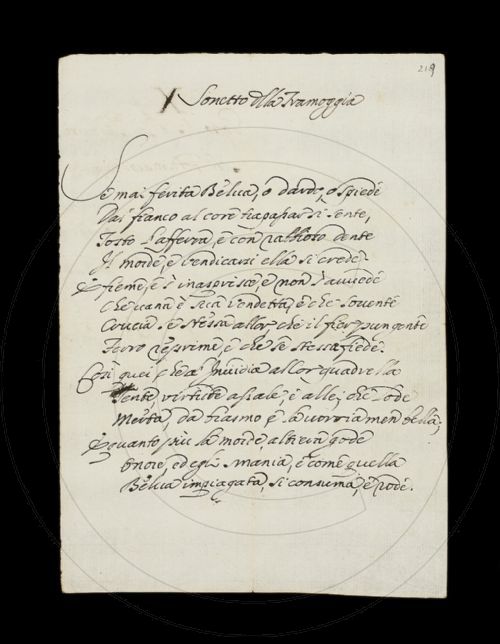 219
Sonetto dlla Tramoggia
Se mai ferita Belua, o dardo, o spiede
Dal fianco al core trapassarsi sente,
Tosto l'afferra, e con rabbioso dente
Il morde, e vendicarsi ella si crede
freme, e s'inasprisce, e non s'auuede
Che uana è sua vendetta, e che souente
Crucia se stessa allor, che il fier pungente
Ferro reprime, e che se stessa fiede.
Così quei ch' Inuidia allor quadrella
uirtute assale, e a lei che lode
Merta, dà biasmo e la uorria men bella;
quanto più la morde, altrui gode
Onore, ed egli smania, e come quella
Belua impiagata, si consuma, e rode.